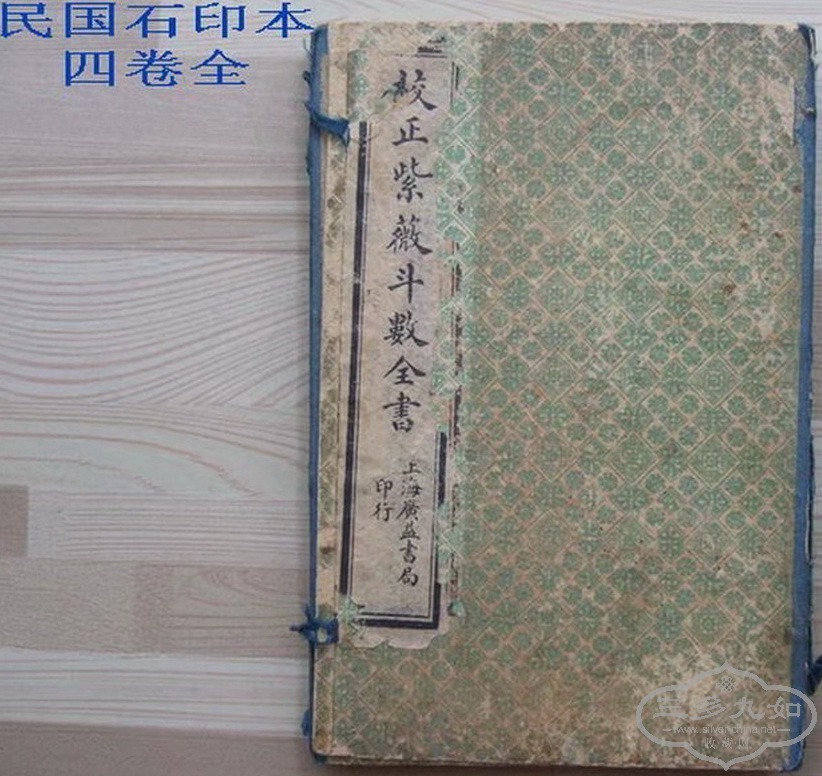 民国石印本
四卷全
校正紫薇斗數全書
上海廣益書局
印行
九如
www.silverchina.net
收藏网